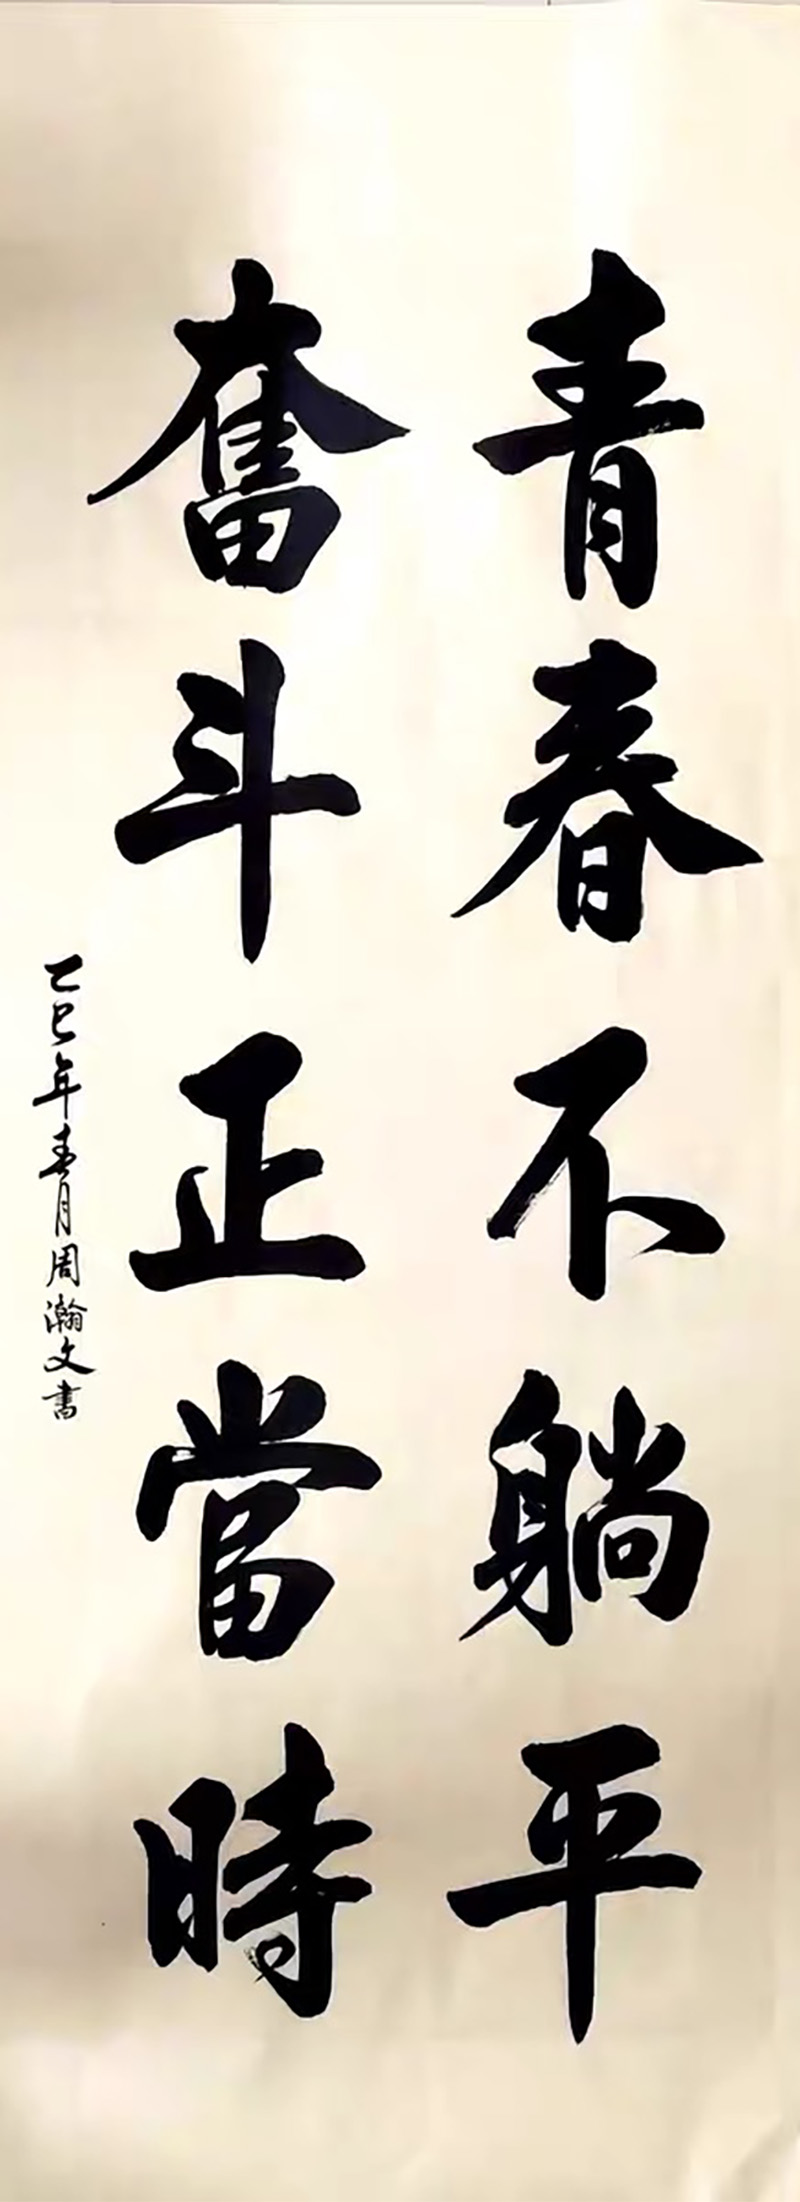 青春不躺平
奮斗正當時
乙巳年春月周瀚文書